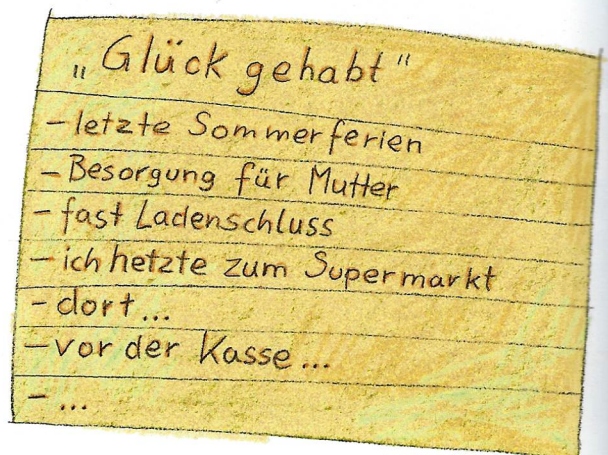 „Glück gehabt"
- letzte Sommerferien
- Besorgung für Mutter
- fast Ladenschluss
- ich hetzte zum Supermarkt
- dort...
- vor der Kasse...
- ...